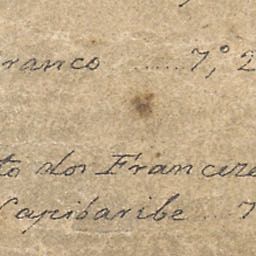 ranco ...... 7,° 2
to dos France
Capibaribe ... 7